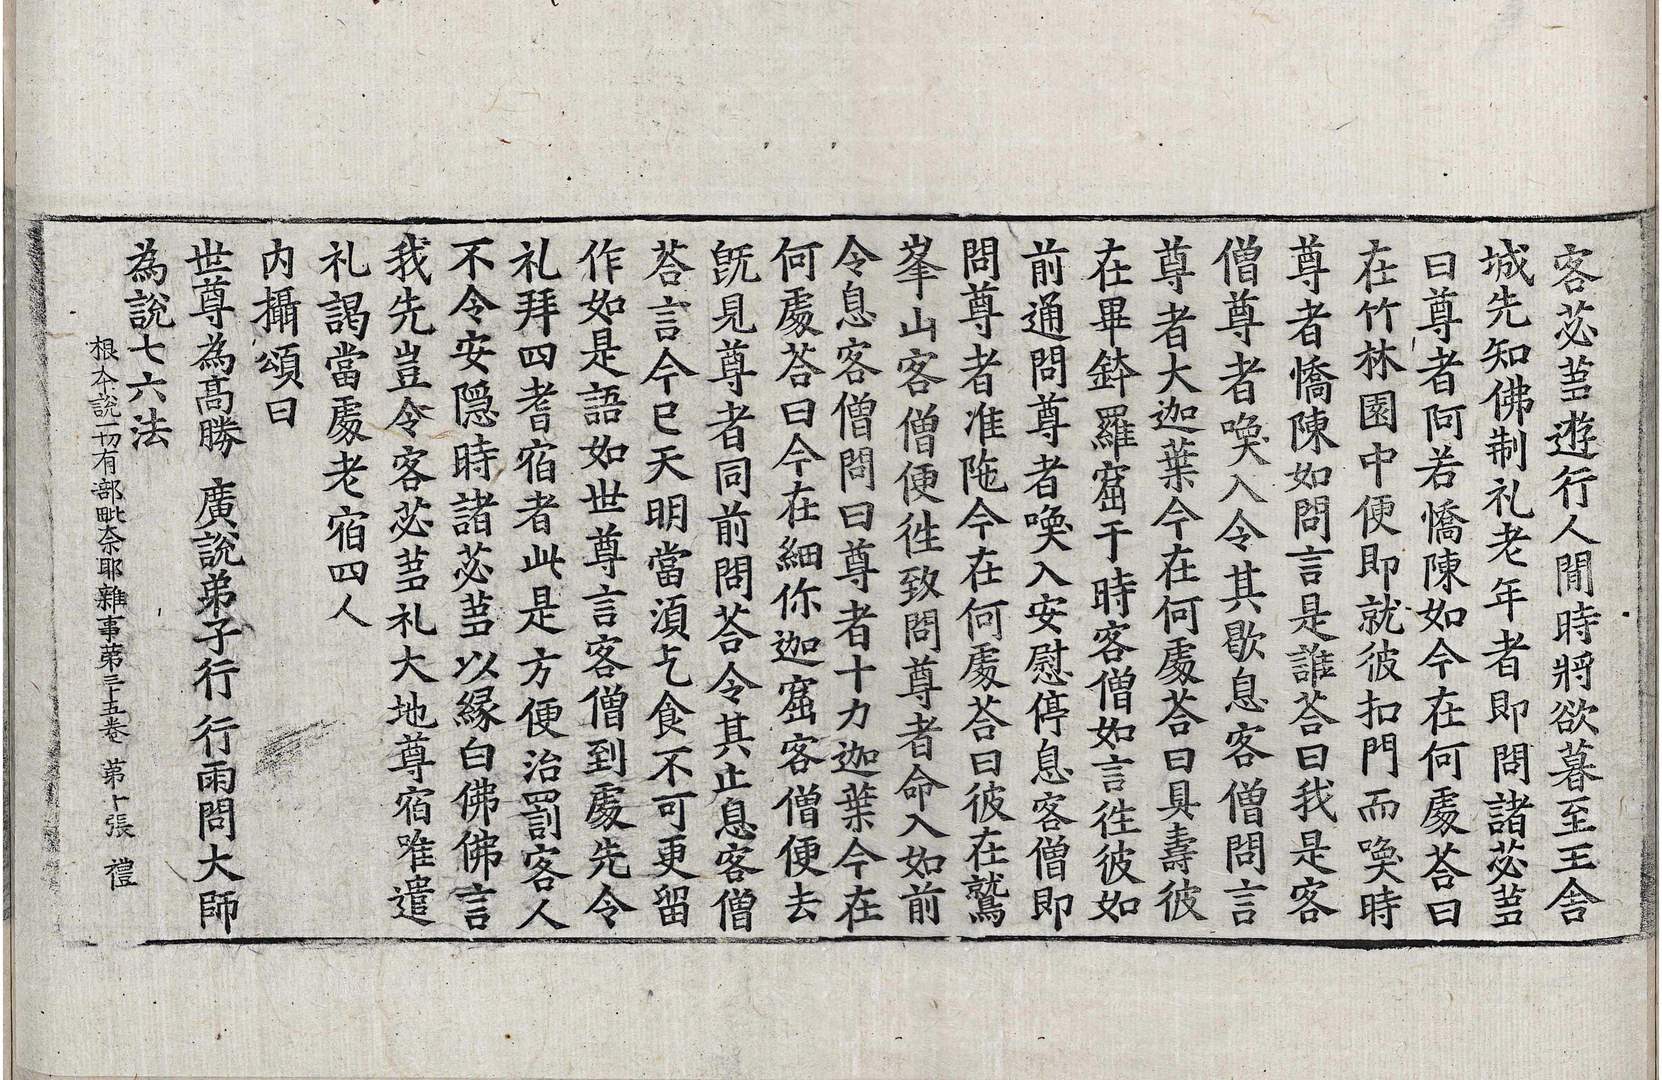 客苾蒭遊行人間時將欲暮至王舍
城先知佛制礼老年者即問諸苾蒭
曰尊者阿若憍陳如今在何處荅曰
在竹林園中便即就彼扣門而喚時
尊者憍陳如問言是誰荅曰我是客
僧尊者喚入令其歇息客僧問言
尊者大迦葉今在何處荅曰具壽彼
在畢鉢羅窟于時客僧如言往彼如
前通問尊者喚入安慰停息客僧即
問尊者准陁今在何處荅曰彼在鷲
峯山客僧便往致問尊者命入如前
令息客僧問曰尊者十力迦葉今在
何處荅曰今在細你迦窟客僧便去
旣見尊者同前問荅令其止息客僧
荅言今已天明當湏乞食不可更留
作如是語如世尊言客僧到處先令
礼拜四耆宿者此是方便治罰客人
不令安隱時諸苾蒭以緣白佛佛言
我先豈令客苾蒭礼大地尊宿唯遣
礼謁當處老宿四人
内攝頌曰
世尊為高勝 廣說弟子行 行雨問大師
為說七六法
根本說一切有部毗奈耶雜事苐三十五卷 第十張 禮